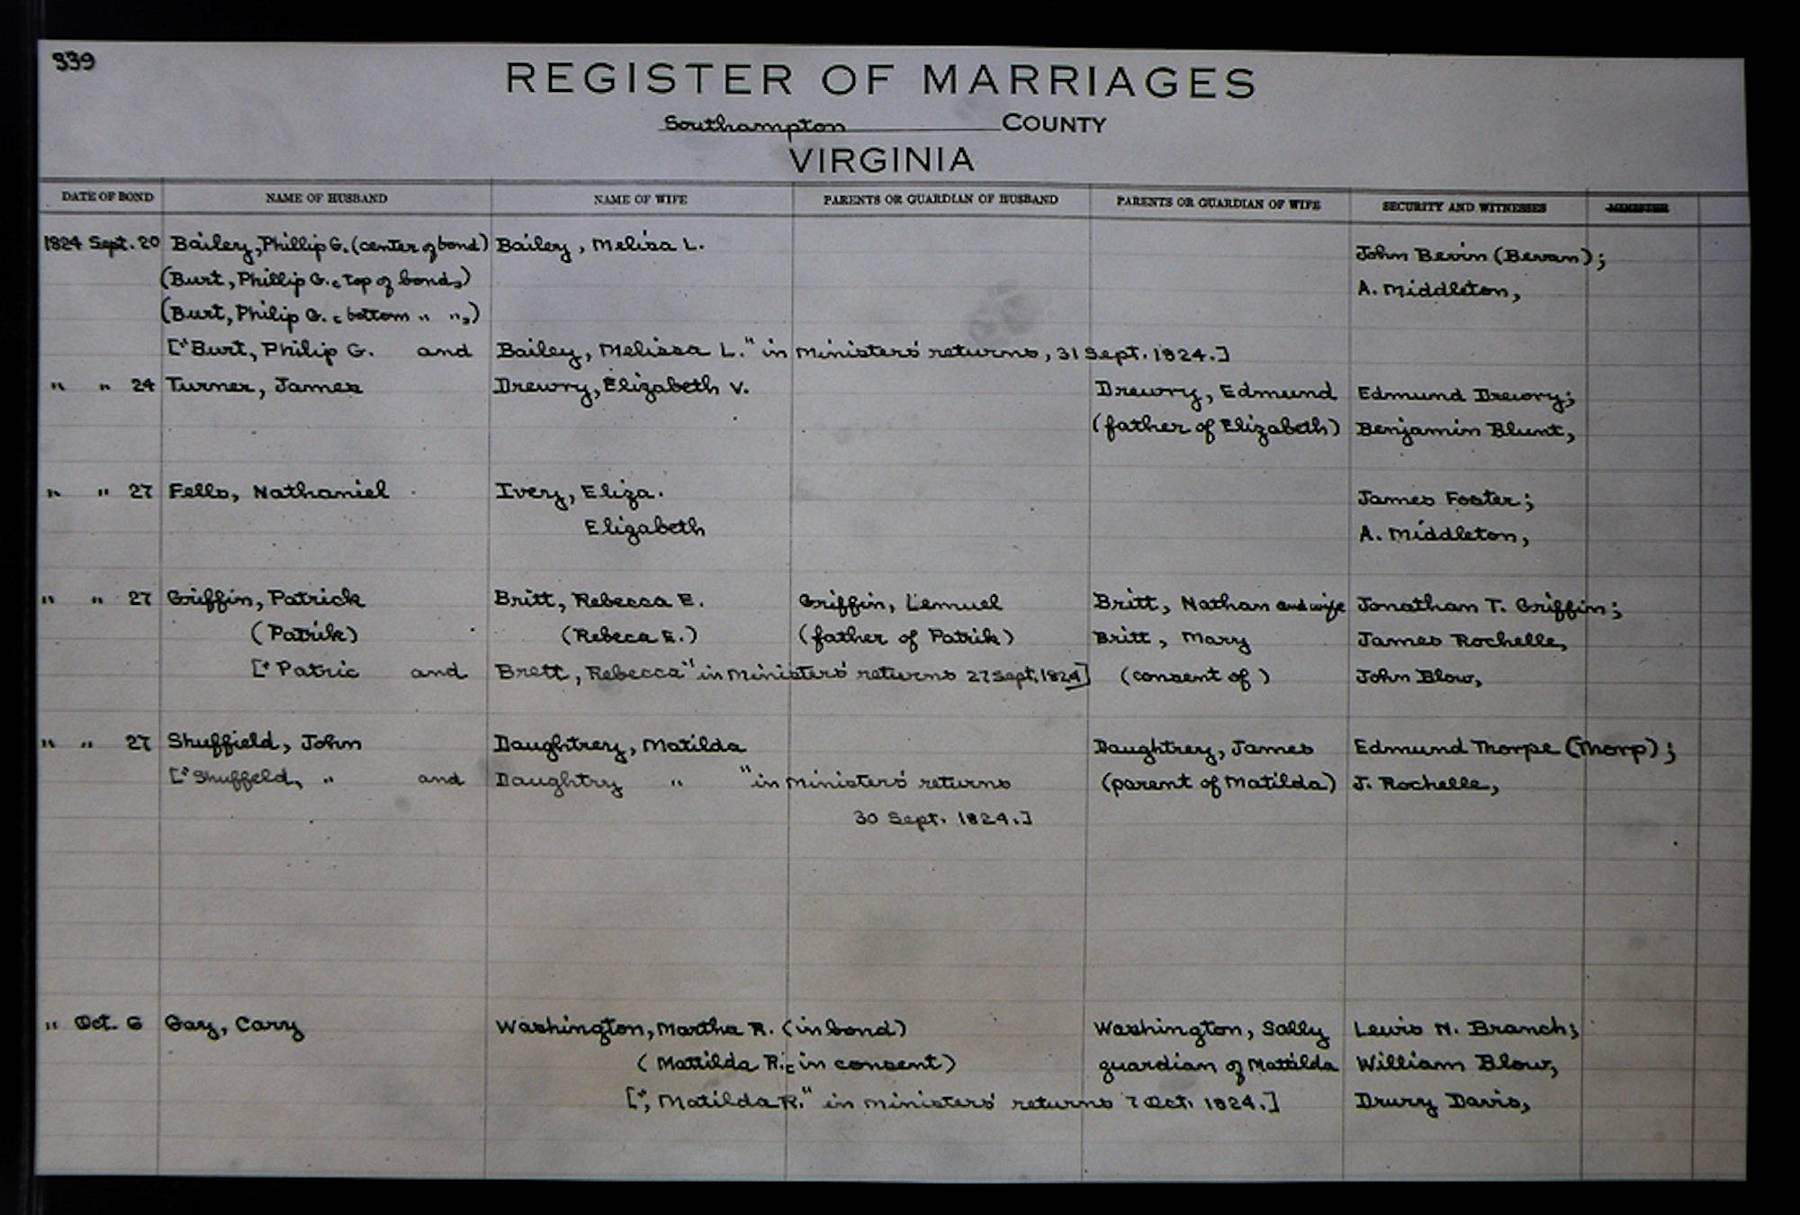 339
REGISTER OF MARRIAGES
Southampton COUNTY
VIRGINIA
DATE OF BOND NAME OF HUSBAND NAME OF WIFE PARENTS OR GUARDIAN OF HUSBAND PARENTS OR GUARDIAN OF WIFE SECURITY AND WITNESSES MINISTER
1824 Sept. 20 Bailey, Phillip G. (center of bond) Bailey, Melisa L. John Bevin (Bevan);
(Burt, Phillip G. [top of bond]) A. Middleton,
(Burt, Philip G. [bottom " "])
["Burt, Philip G. and Bailey, Melissa L." in ministers' returns, 31 Sept. 1824.]
" " 24 Turner, James Drewry, Elizabeth V. Drewry, Edmund Edmund Drewry;
(father of Elizabeth) Benjamin Blunt,
" " 27 Fells, Nathaniel Ivery, Eliza. James Foster;
Elizabeth A. Middleton,
" " 27 Griffin, Patrick Britt, Rebecca E. Griffin, Lemuel Britt, Nathan and wife Jonathan T. Griffin;
(Patrik) (Rebeca E.) (father of Patrik) Britt, Mary James Rochelle,
["Patric and Brett, Rebecca" in ministers' returns 27 Sept. 1824] (consent of) John Blow,
" " 27 Shuffield, John Daughtrey, Matilda Daughtrey, James Edmund Thorpe (Thorp);
["Shuffeld, " and Daughtry " " in ministers' returns (parent of Matilda) J. Rochelle,
30 Sept. 1824.]
" Oct. 6 Gay, Cary Washington, Martha R. (in bond) Washington, Sally Lewis N. Branch;
(Mattilda R. [in consent) guardian of Mattilda William Blow,
[", Matilda R." in ministers' returns 7 Oct. 1824.] Drury Davis,